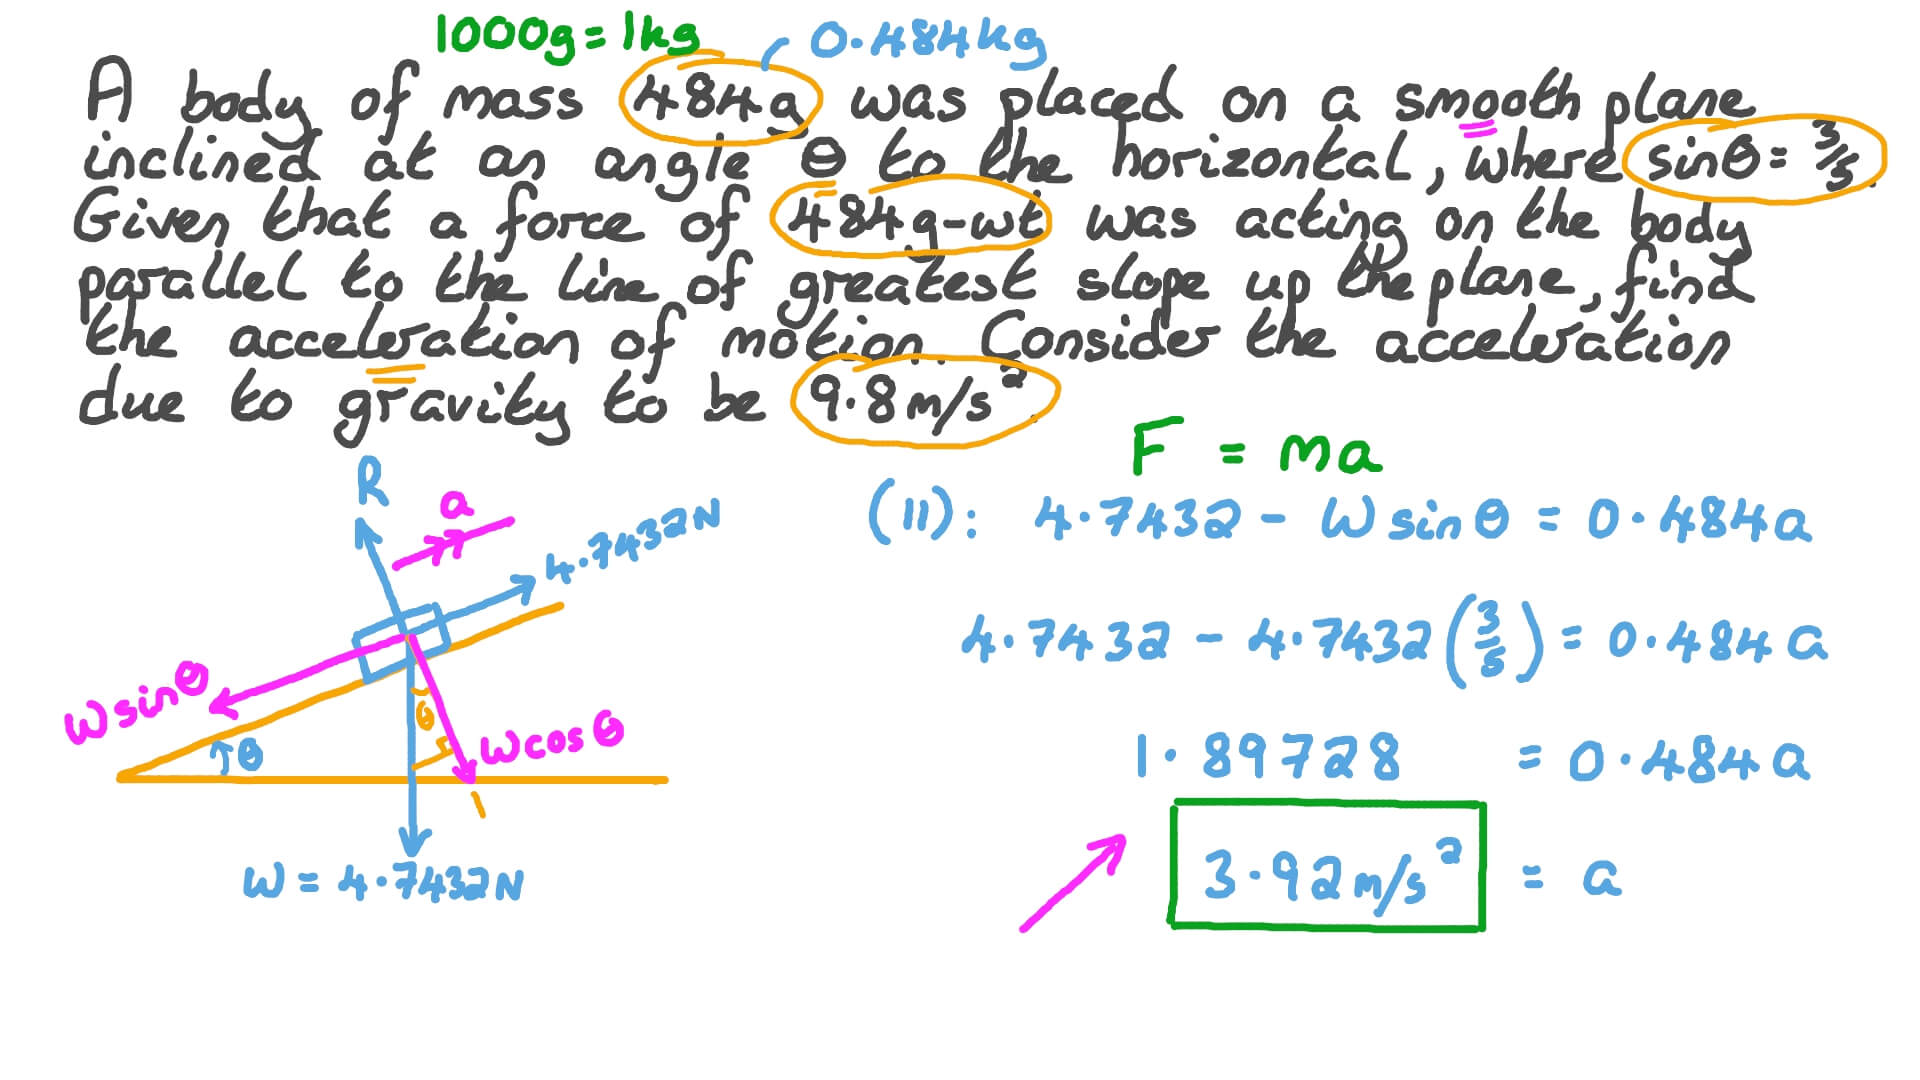 1000g = 1kg 0.484kg
A body of mass 484g was placed on a smooth plane
inclined at an angle θ to the horizontal, where sinθ = 3/5.
Given that a force of 484g-wt was acting on the body
parallel to the line of greatest slope up the plane, find
the acceleration of motion. Consider the acceleration
due to gravity to be 9.8m/s².
F = ma
R
a
4.7432N
Wsinθ
θ
θ
Wcosθ
W = 4.7432N
(11): 4.7432 - Wsinθ = 0.484a
4.7432 - 4.7432(3/5) = 0.484a
1.89728 = 0.484a
3.92m/s² = a